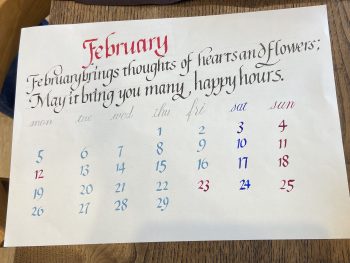 February
February brings thoughts of hearts and flowers;
May it bring you many, happy hours.
mon tue wed thu fri sat sun
1 2 3 4
5 6 7 8 9 10 11
12 13 14 15 16 17 18
19 20 21 22 23 24 25
26 27 28 29